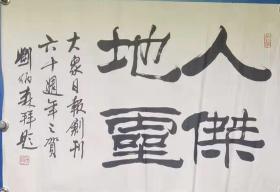 人傑
地靈
大众日报創刊
六十週年之賀
劉炳森拜題